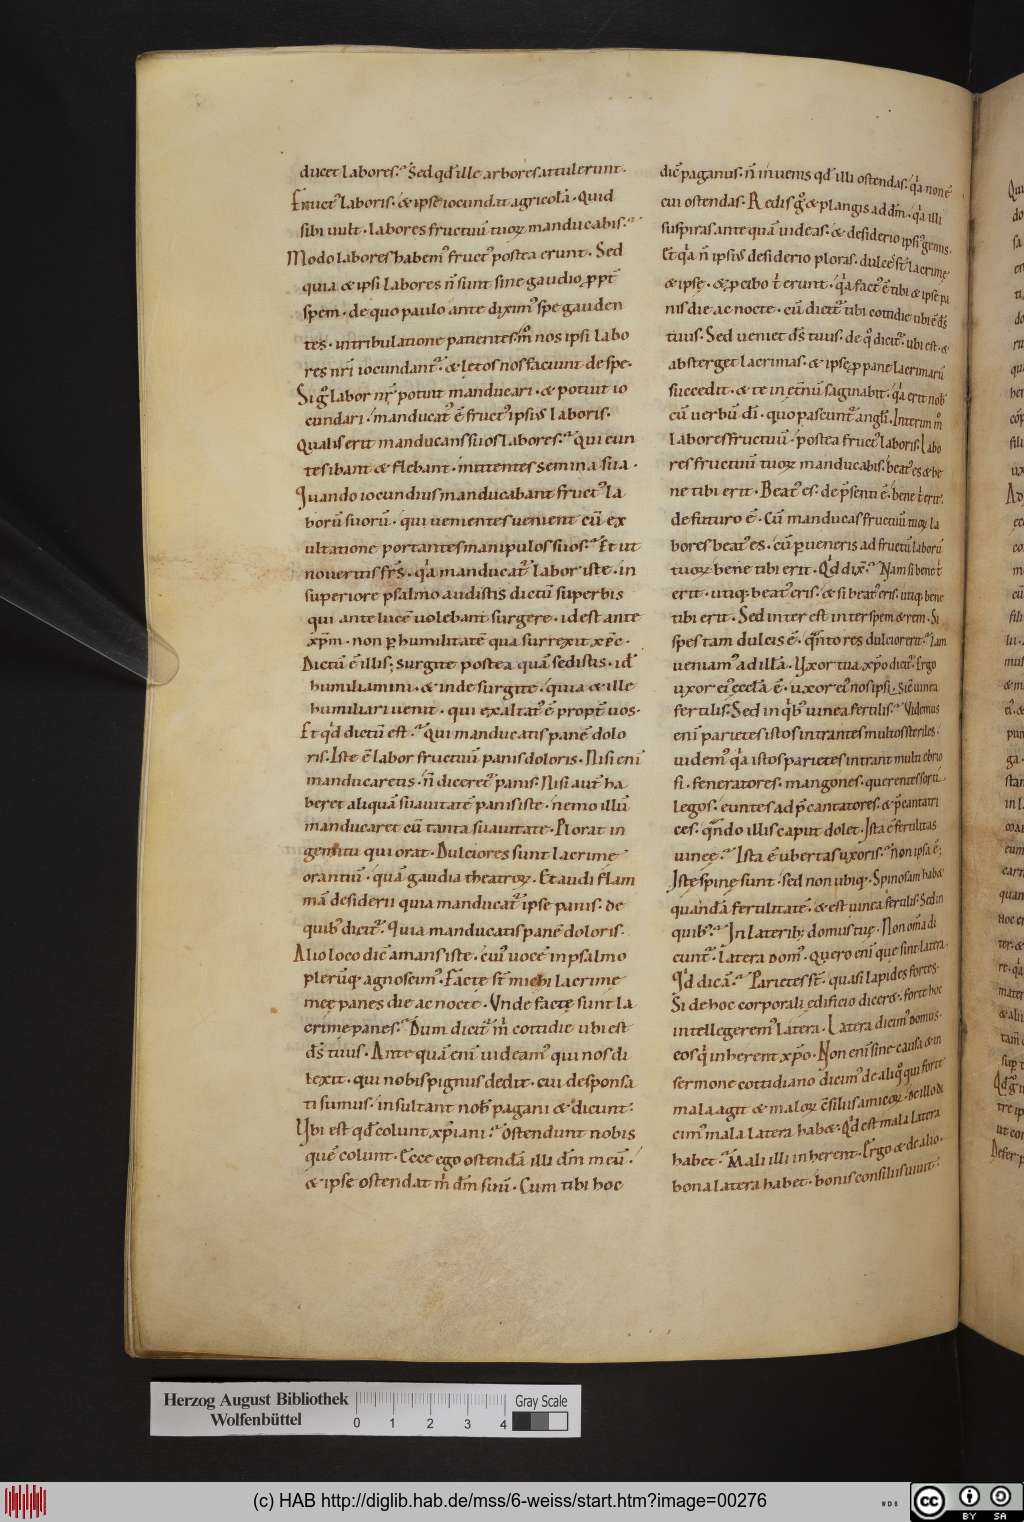 ducet labores. Sed qđ ille arbores attulerunt.
Fruct᷒ laboris. & ipse iocundat agricolā. Quid
sibi uult. labores fructuū tuoꝝ manducabis.
Modo labores habem᷒ fruct᷒ postea erunt. Sed
quia & ipsi labores ñ sunt sine gaudio ꝓpt̄
spem. de quo paulo ante dixim᷒ spe gauden
tes. in tribulatione patientes. m̊ nos ipsi labo
res nr̄i iocundant᷒. & letos nos faciunt de spe.
Si gͦ labor nr̄ potuit manducari. & potuit io
cundari. manducat᷒ ē fruct᷒ ipsius laboris.
Qualis erit manducans suos labores. qui eun
tes ibant & flebant. mittentes semina sua.
Quando iocundius manducabant fruct᷒ la
borū suorū. qui uenientes uenient cū ex
ultatione portantes manipulos suos. Et ut
noueritis fr̄s. qͥa manducat᷒ labor iste. in
superiore psalmo audistis dictū superbis
qui ante lucē uolebant surgere. id est ante
xp̄m. non ꝑ humilitatē qua surrexit xp̄c.
Dictū ē illis; surgite postea quā sedistis. id̄
humiliamini. & inde surgite. quia & ille
humiliari uenit. qui exaltat᷒ ē propt̄ uos.
Et qͥd dictū est. Qui manducatis panē dolo
ris. Iste ē labor fructuū panis doloris. Nisi eni
manducaretis. ñ diceret᷒ panis. Nisi aut̄ ha
beret aliquā suauitatē panis iste. nemo illū
manducaret cū tanta suauitate. Plorat in
gemitu qui orat. Dulciores sunt lacrime
orantiū. quā gaudia theatroꝝ. Et audi flam
mā desiderii quia manducat᷒ ipse panis. de
quib᷒ dicit᷒. Quia manducatis panē doloris.
Alio loco dic̄ amans iste. cui᷒ uocē in psalmo
plerūq; agnoscim᷒. Factę st̄ michi lacrime
meę panes die ac nocte. Vnde factę sunt la
crime panes. Dum dicit᷒ m̄ cottidie ubi est
d̄s tuus. Ante quā eni uideam᷒ qui nos di
lexit. qui nobis pignus dedit. cui desponsa
ti sumus. insultant nob̄ pagani & dicunt:
Vbi est qđ colunt xp̄iani. Ostendunt nobis
quē colunt. Ecce ego ostendā illi dm̄ meū.
& ipse ostendat m̄ dm̄ suū. Cum tibi hoc
dic̄ paganus. ñ inuenis qđ illi ostendas. qͥa non ē
cui ostendas. Redis gͦ & plangis ad dm̄. qͥa illi
suspiras ante quā uideas. & desiderio ipsi᷒ gemis.
Et qͥa ñ ipsius desiderio ploras. dulcęs st̄ lacrimę
& ipsę. & ꝓ cibo t̄ erunt. qͥa fact᷒ ē tibi & ipse pa
nis die ac nocte. cū dicit᷒ tibi cottidie ubi ē d̄s
tuus. Sed ueniet d̄s tuus. de qͦ dicit᷒. ubi est. &
absterget lacrimas. & ipse ꝓ pane lacrimarū
succedit. & te in et̄nū saginabit. qͥa erit nob̄
cū uerbū dī. quo pascunt᷒ angl̄i. Interim m̊
labores fructuū. postea fruct᷒ laboris. Labo
res fructuū tuoꝝ manducabis. beat᷒ es & be
ne tibi erit. Beat᷒ es. de p̄senti ē. bene t̄ erit.
de futuro ē. Cū manducas fructuū tuoꝝ la
bores beat᷒ es. cū ꝑueneris ad fructū laborū
tuoꝝ bene tibi erit. Qͥd dix̄. Nam si bene t̄
erit. utiq; beat᷒ eris. & si beat᷒ eris. utiq; bene
tibi erit. Sed interest inter spem & rem. Si
spes tam dulcis ē. qͣnto res dulcior erit. Iam
ueniam᷒ ad illā. Vxor tua xp̄o dicit᷒. Ergo
uxor ei᷒ eccl̄a ē. uxor ei᷒ nos ipsi. Sic̄ uinea
fertilis. Sed in qͥb᷒ uinea fertilis. Videmus
eni parietes istos intrantes multos steriles.
uidem᷒ qͥa istos parietes intrant multi ebrio
si. feneratores. mangones. querentes sorti
legos. euntes ad p̄cantatores. & p̄cantatri
ces. qͣndo illis caput dolet. Ista ē fertilitas
uineę. Ista ē ubertas uxoris. Non ipsa ē;
Istę spinę sunt. sed non ubiq;. Spinosam hab&
quandā fertilitatē. & est uinea fertilis. Sed in
quib᷒. In lateribꝫ domus tuę. Non om̄a di
cunt᷒. latera dom᷒. Quero eni quę sint latera.
Qͥd dicā. Parietes st̄. quasi lapides fortes.
Si de hoc corporali ędificio dicer&. forte hoc
intellegerem᷒ latera. Latera dicim᷒ domus.
eos qͥ inherent xp̄o. Non eni sine causa & in
sermone cottidiano dicim᷒ de aliqͦ qui forte
mala agit & maloꝝ ē silius amicoꝝ. De illo di
cim᷒ mala latera hab&. Qͥd est mala latera
habet. Mali illi inherent. Ergo & de alio.
bona latera habet. bonis consiliis uiuit.
Herzog August Bibliothek
Wolfenbüttel
0 1 2 3 4
Gray Scale
(c) HAB http://diglib.hab.de/mss/6-weiss/start.htm?image=00276
cc BY SA